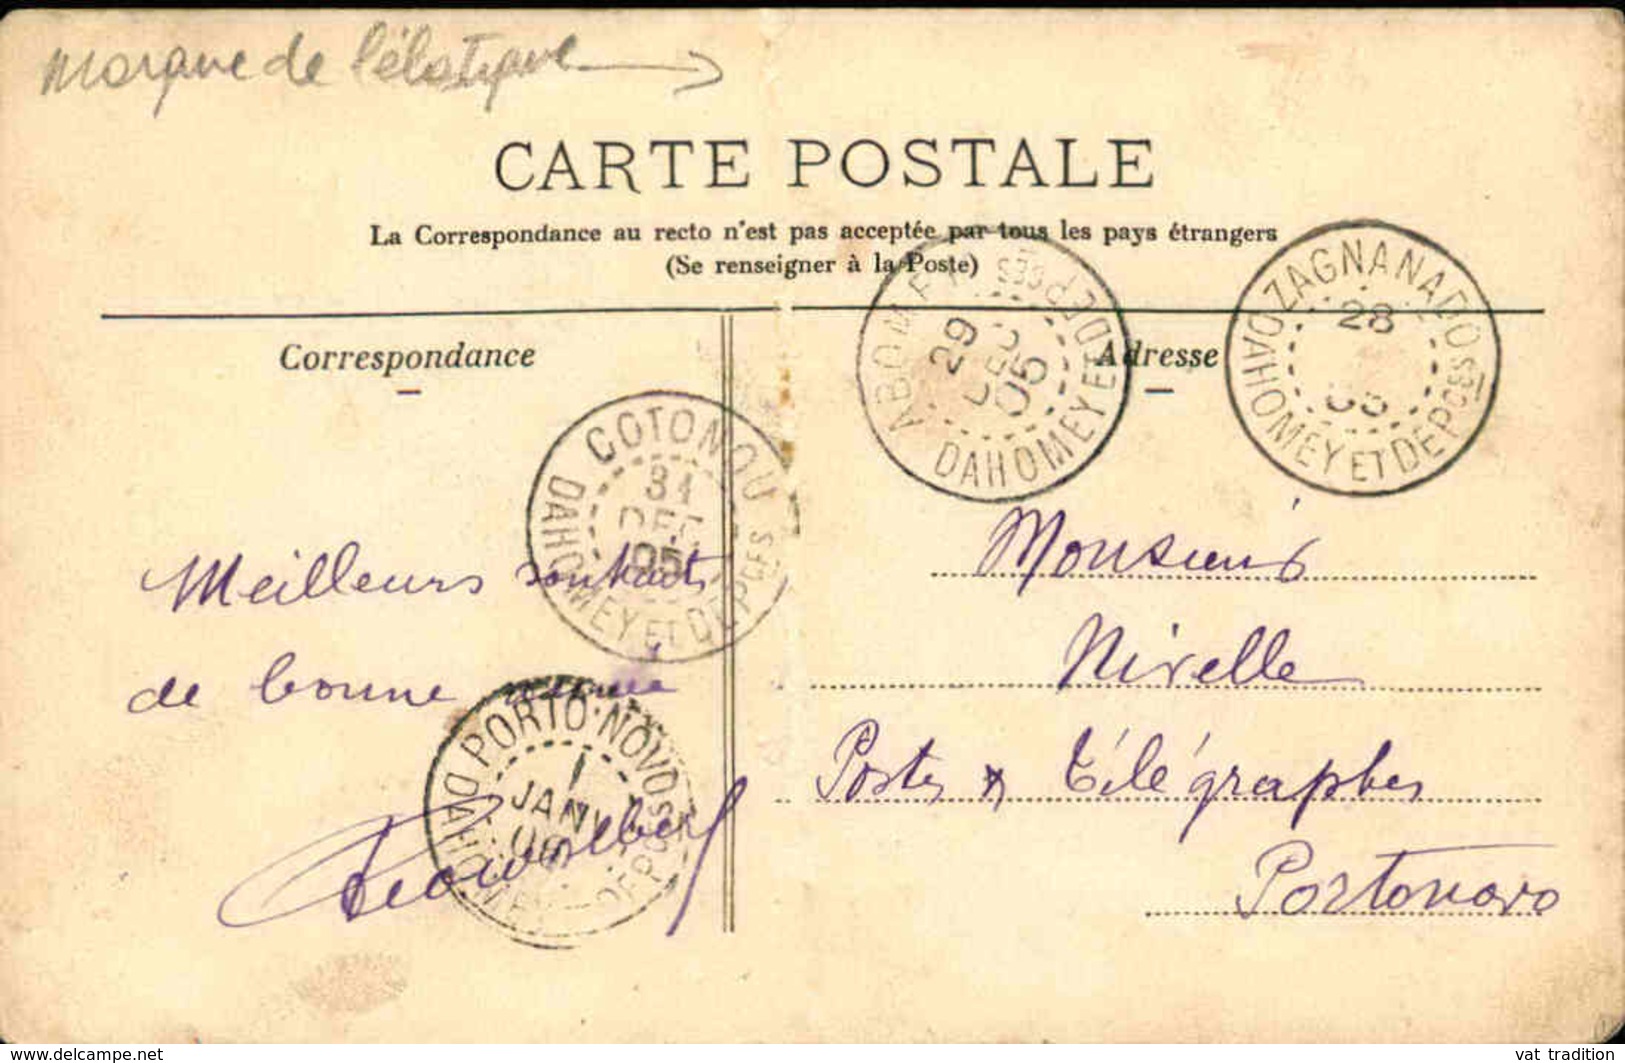 Marque de l'élastique
CARTE POSTALE
La Correspondance au recto n'est pas acceptée par tous les pays étrangers
(Se renseigner à la Poste)
Correspondance
Adresse
ABOMEY
29
DEC
05
DAHOMEY ET DEP
ZAGNANADO
28
05
DAHOMEY ET DEPCES
COTONOU
31
DEC
05
DAHOMEY ET DEPCES
Meilleurs souhaits
de bonne année
PORTO-NOVO
1
JANV
06
Monsieur
Nivelle
Postes & Télégraphes
Portonovo
delcampe.net
vat_tradition